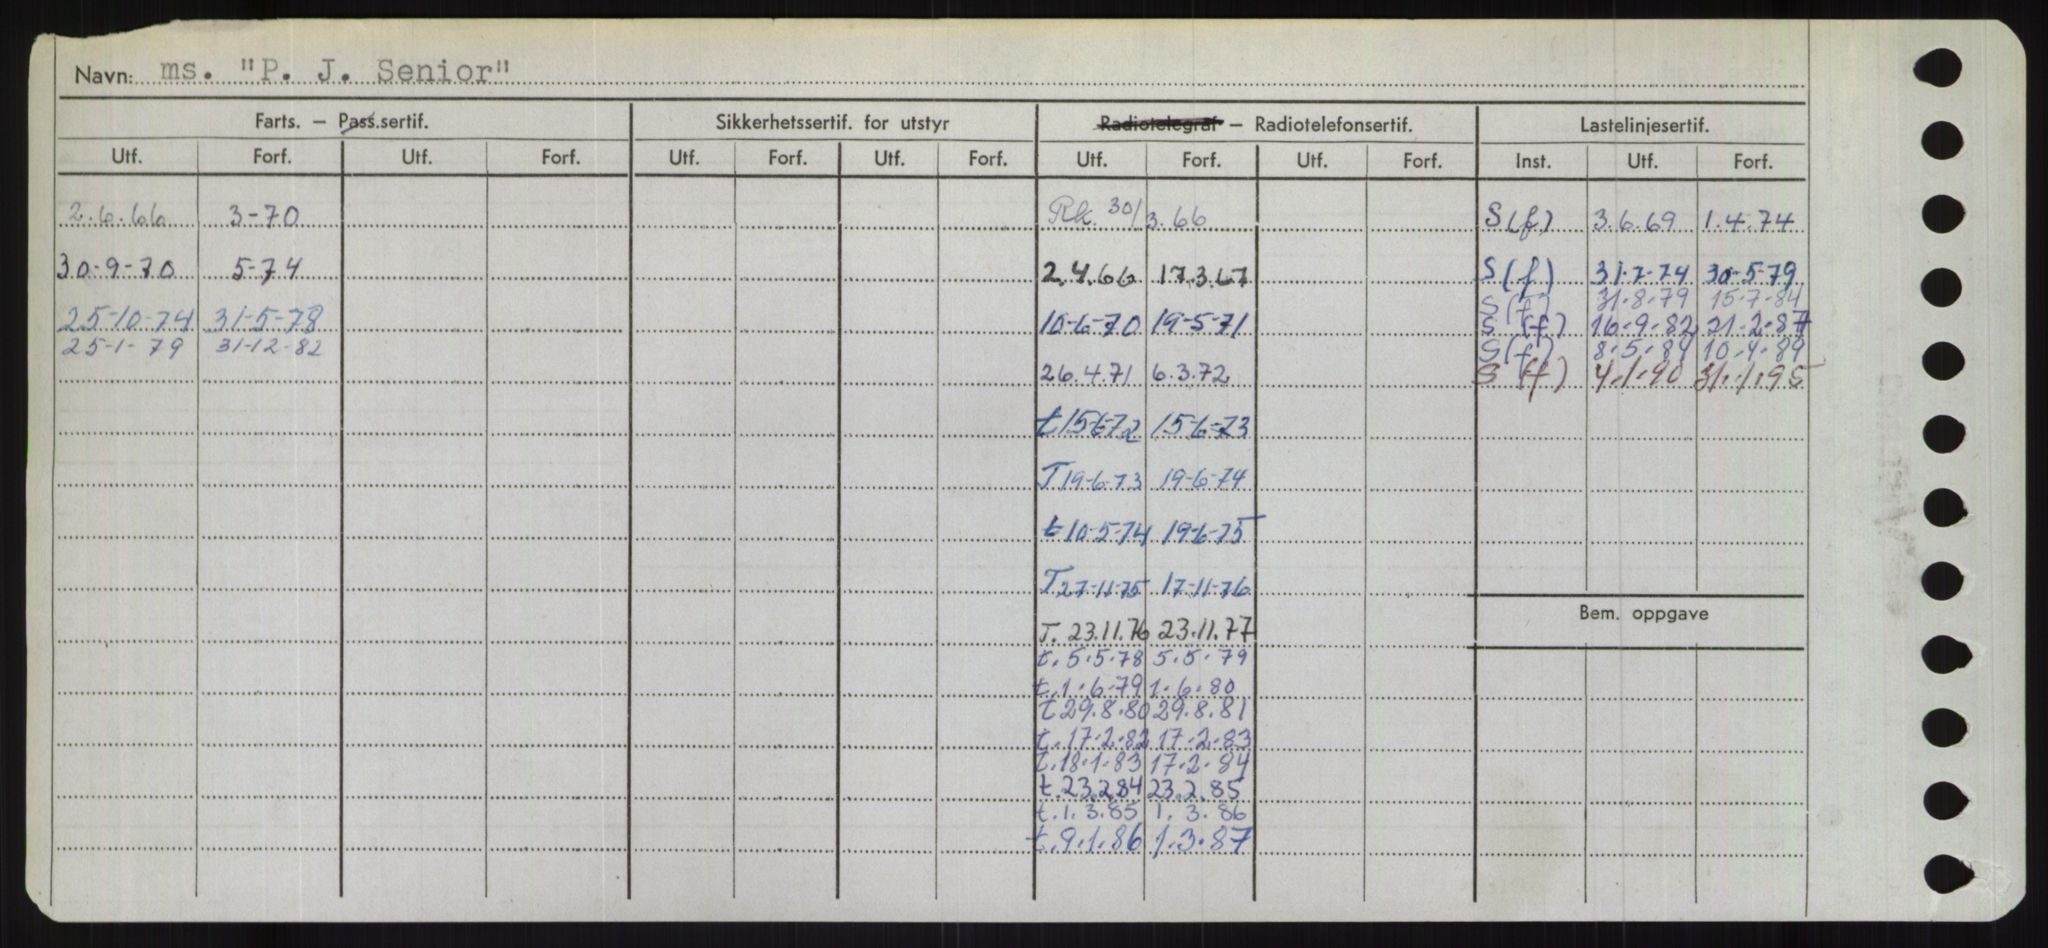 Navn: ms. "P. J. Senior"
Farts. – Pass.sertif. Sikkerhetssertif. for utstyr Radiotelegraf – Radiotelefonsertif. Lastelinjesertif.
Utf. Forf. Utf. Forf. Utf. Forf. Utf. Forf. Utf. Forf. Utf. Forf. Inst. Utf. Forf.
2.6.66 3-70 Rk. 30/3.66 S(f) 3.6.69 1.4.74
30-9-70 5-74 2.4.66 17.3.67 S(f) 31-7-74 30-5-79
S(f) 31.8.79 15.7.84
25-10-74 31-5-78 10-6-70 19-5-71 S (f) 16.9.82 21.2.87
25-1-79 31-12-82 S(f) 10.4.89
26.4.71 6.3.72 S (f) 4.1.90 31.1.95
t 15-6-72 15-6-73
T 19-6-73 19-6-74
t 10-5-74 19-6-75
T 27-11-75 17-11-76
Bem. oppgave
T. 23.11.76 23.11.77
t. 5.5.78 5.5.79
t. 1.6.79 1.6.80
t 29.8.80 29.8.81
t. 17.2.82 17.2.83
t. 18.1.83 17.2.84
t. 23.2.84 23.2.85
t. 1.3.85 1.3.86
t. 9.1.86 1.3.87